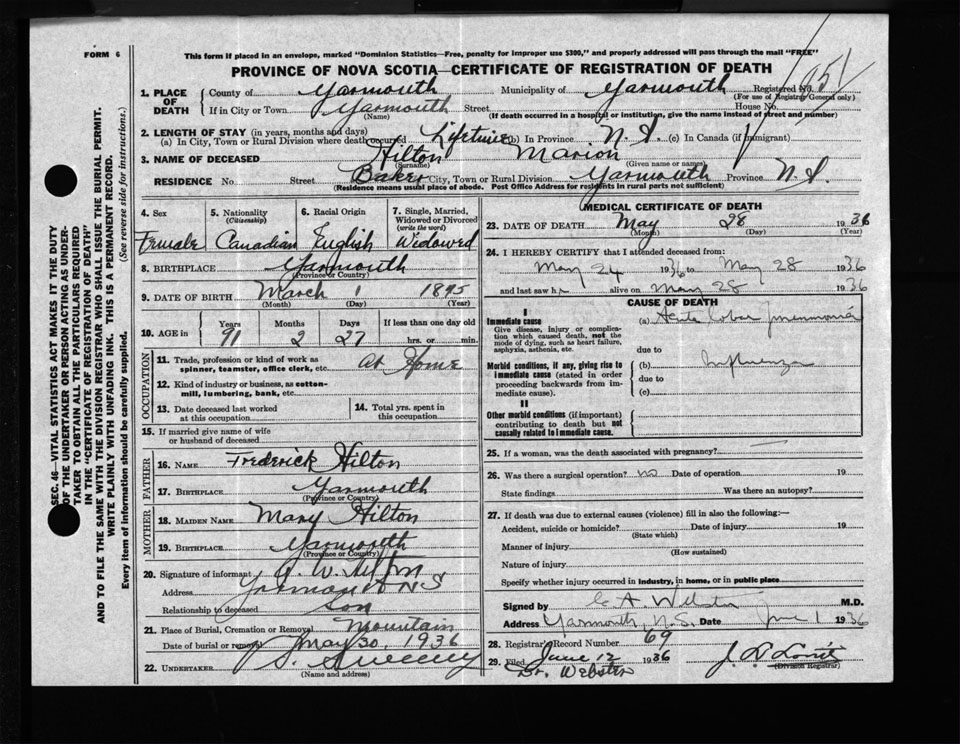 FORM 6
This form if placed in an envelope, marked "Dominion Statistics—Free, penalty for improper use $300," and properly addressed will pass through the mail "FREE"
PROVINCE OF NOVA SCOTIA—CERTIFICATE OF REGISTRATION OF DEATH
SEC. 46—VITAL STATISTICS ACT MAKES IT THE DUTY
OF THE UNDERTAKER OR PERSON ACTING AS UNDER-
TAKER TO OBTAIN ALL THE PARTICULARS REQUIRED
IN THE "CERTIFICATE OF REGISTRATION OF DEATH"
AND TO FILE THE SAME WITH THE DIVISION REGISTRAR WHO SHALL ISSUE THE BURIAL PERMIT.
WRITE PLAINLY WITH UNFADING INK. THIS IS A PERMANENT RECORD.
Every item of information should be carefully supplied. (See reverse side for instructions.)
1. PLACE OF DEATH County of Yarmouth Municipality of Yarmouth Registered No.
(For use of Registrar General only)
If in City or Town Yarmouth Street House No.
(Name) (If death occurred in a hospital or institution, give the name instead of street and number)
2. LENGTH OF STAY (in years, months and days)
(a) In City, Town or Rural Division where death occurred Lifetime (b) In Province N.S. (c) In Canada (if immigrant)
3. NAME OF DECEASED Hilton Marion
(Surname) (Given name or names)
RESIDENCE No. Street Baker City, Town or Rural Division Yarmouth Province N.S.
(Residence means usual place of abode. Post Office Address for residents in rural parts not sufficient)
4. Sex
Female
5. Nationality
(Citizenship)
Canadian
6. Racial Origin
English
7. Single, Married,
Widowed or Divorced
(write the word)
Widowed
8. BIRTHPLACE Yarmouth
(Province or Country)
9. DATE OF BIRTH March 1 1845
(Month) (Day) (Year)
10. AGE in Years Months Days If less than one day old
91 2 27 hrs. or min.
OCCUPATION
11. Trade, profession or kind of work as
spinner, teamster, office clerk, etc. at Home
12. Kind of industry or business, as cotton-
mill, lumbering, bank, etc.
13. Date deceased last worked
at this occupation
14. Total yrs. spent in
this occupation
15. If married give name of wife
or husband of deceased
FATHER
16. NAME Frederick Hilton
17. BIRTHPLACE Yarmouth
(Province or Country)
MOTHER
18. MAIDEN NAME Mary Hilton
19. BIRTHPLACE Yarmouth
(Province or Country)
20. Signature of informant W. Hilton
Address Yarmouth NS
Relationship to deceased Son
21. Place of Burial, Cremation or Removal Mountain
Date of burial or removal May 30, 1936
22. UNDERTAKER Sweeney
(Name and address)
MEDICAL CERTIFICATE OF DEATH
23. DATE OF DEATH May 28 1936
(Month) (Day) (Year)
24. I HEREBY CERTIFY that I attended deceased from:
May 24 1936 to May 28 1936
and last saw h alive on May 28 1936
CAUSE OF DEATH
I
Immediate cause
Give disease, injury or complica-
tion which caused death, not the
mode of dying, such as heart failure,
asphyxia, asthenia, etc.
(a) Acute lobar pneumonia
due to
Morbid conditions, if any, giving rise to
immediate cause (stated in order
proceeding backwards from im-
mediate cause).
(b) Influenza
due to
(c)
II
Other morbid conditions (if important)
contributing to death but not
causally related to immediate cause.
25. If a woman, was the death associated with pregnancy?
26. Was there a surgical operation? no Date of operation 19
State findings Was there an autopsy?
27. If death was due to external causes (violence) fill in also the following:—
Accident, suicide or homicide? Date of injury 19
(State which)
Manner of injury
(How sustained)
Nature of injury
Specify whether injury occurred in industry, in home, or in public place
Signed by A. Webster M.D.
Address Yarmouth, N.S. Date June 1 1936
28. Registrar's Record Number 69
29. Filed June 12 1936
(Division Registrar)
Dr. Webster